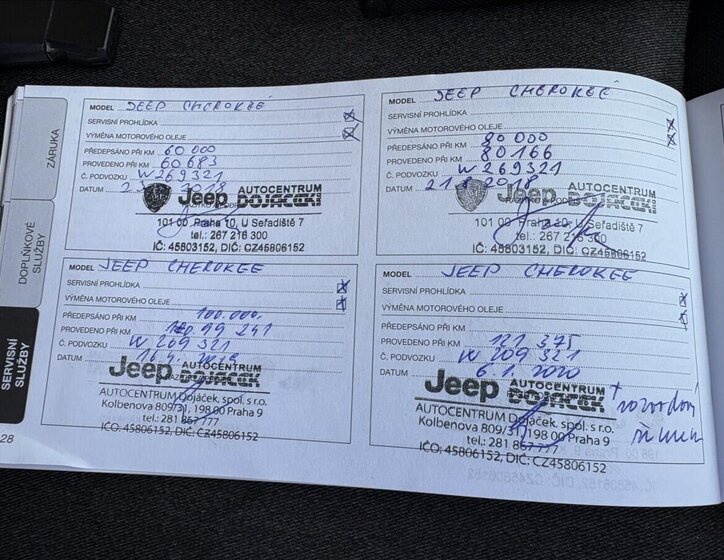 ZÁRUKA
DOPLŇKOVÉ
SLUŽBY
SERVISNÍ
SLUŽBY
28
MODEL JEEP CHEROKEE
SERVISNÍ PROHLÍDKA
VÝMĚNA MOTOROVÉHO OLEJE
PŘEDEPSÁNO PŘI KM 60 000
PROVEDENO PŘI KM 60 683
Č. PODVOZKU W269321
DATUM 2018
Jeep AUTOCENTRUM
DOJÁČEK
101 00 Praha 10, U Seřadiště 7
tel.: 267 216 300
IČ: 45803152, DIČ: CZ45806152
MODEL JEEP CHEROKEE
SERVISNÍ PROHLÍDKA
VÝMĚNA MOTOROVÉHO OLEJE
PŘEDEPSÁNO PŘI KM 80 000
PROVEDENO PŘI KM 80 166
Č. PODVOZKU W269321
DATUM 2018
Jeep AUTOCENTRUM
DOJÁČEK
101 00 Praha 10, U Seřadiště 7
tel.: 267 216 300
IČ: 45803152, DIČ: CZ45806152
MODEL JEEP CHEROKEE
SERVISNÍ PROHLÍDKA
VÝMĚNA MOTOROVÉHO OLEJE
PŘEDEPSÁNO PŘI KM 100.000.
PROVEDENO PŘI KM 99 241
Č. PODVOZKU W 269 321
DATUM 16. 4. 2019
Jeep AUTOCENTRUM
DOJÁČEK
AUTOCENTRUM Dojáček, spol. s r.o.
Kolbenova 809/31, 198 00 Praha 9
tel.: 281 867 777
IČO: 45806152, DIČ: CZ45806152
MODEL JEEP CHEROKEE
SERVISNÍ PROHLÍDKA
VÝMĚNA MOTOROVÉHO OLEJE
PŘEDEPSÁNO PŘI KM
PROVEDENO PŘI KM 121 375
Č. PODVOZKU W 269 321
DATUM 6. 1. 2020
Jeep AUTOCENTRUM
DOJÁČEK
AUTOCENTRUM Dojáček, spol. s r.o.
Kolbenova 809/31, 198 00 Praha 9
tel.: 281 867 777
IČO: 45806152, DIČ: CZ45806152
+ rozvodový
řemen